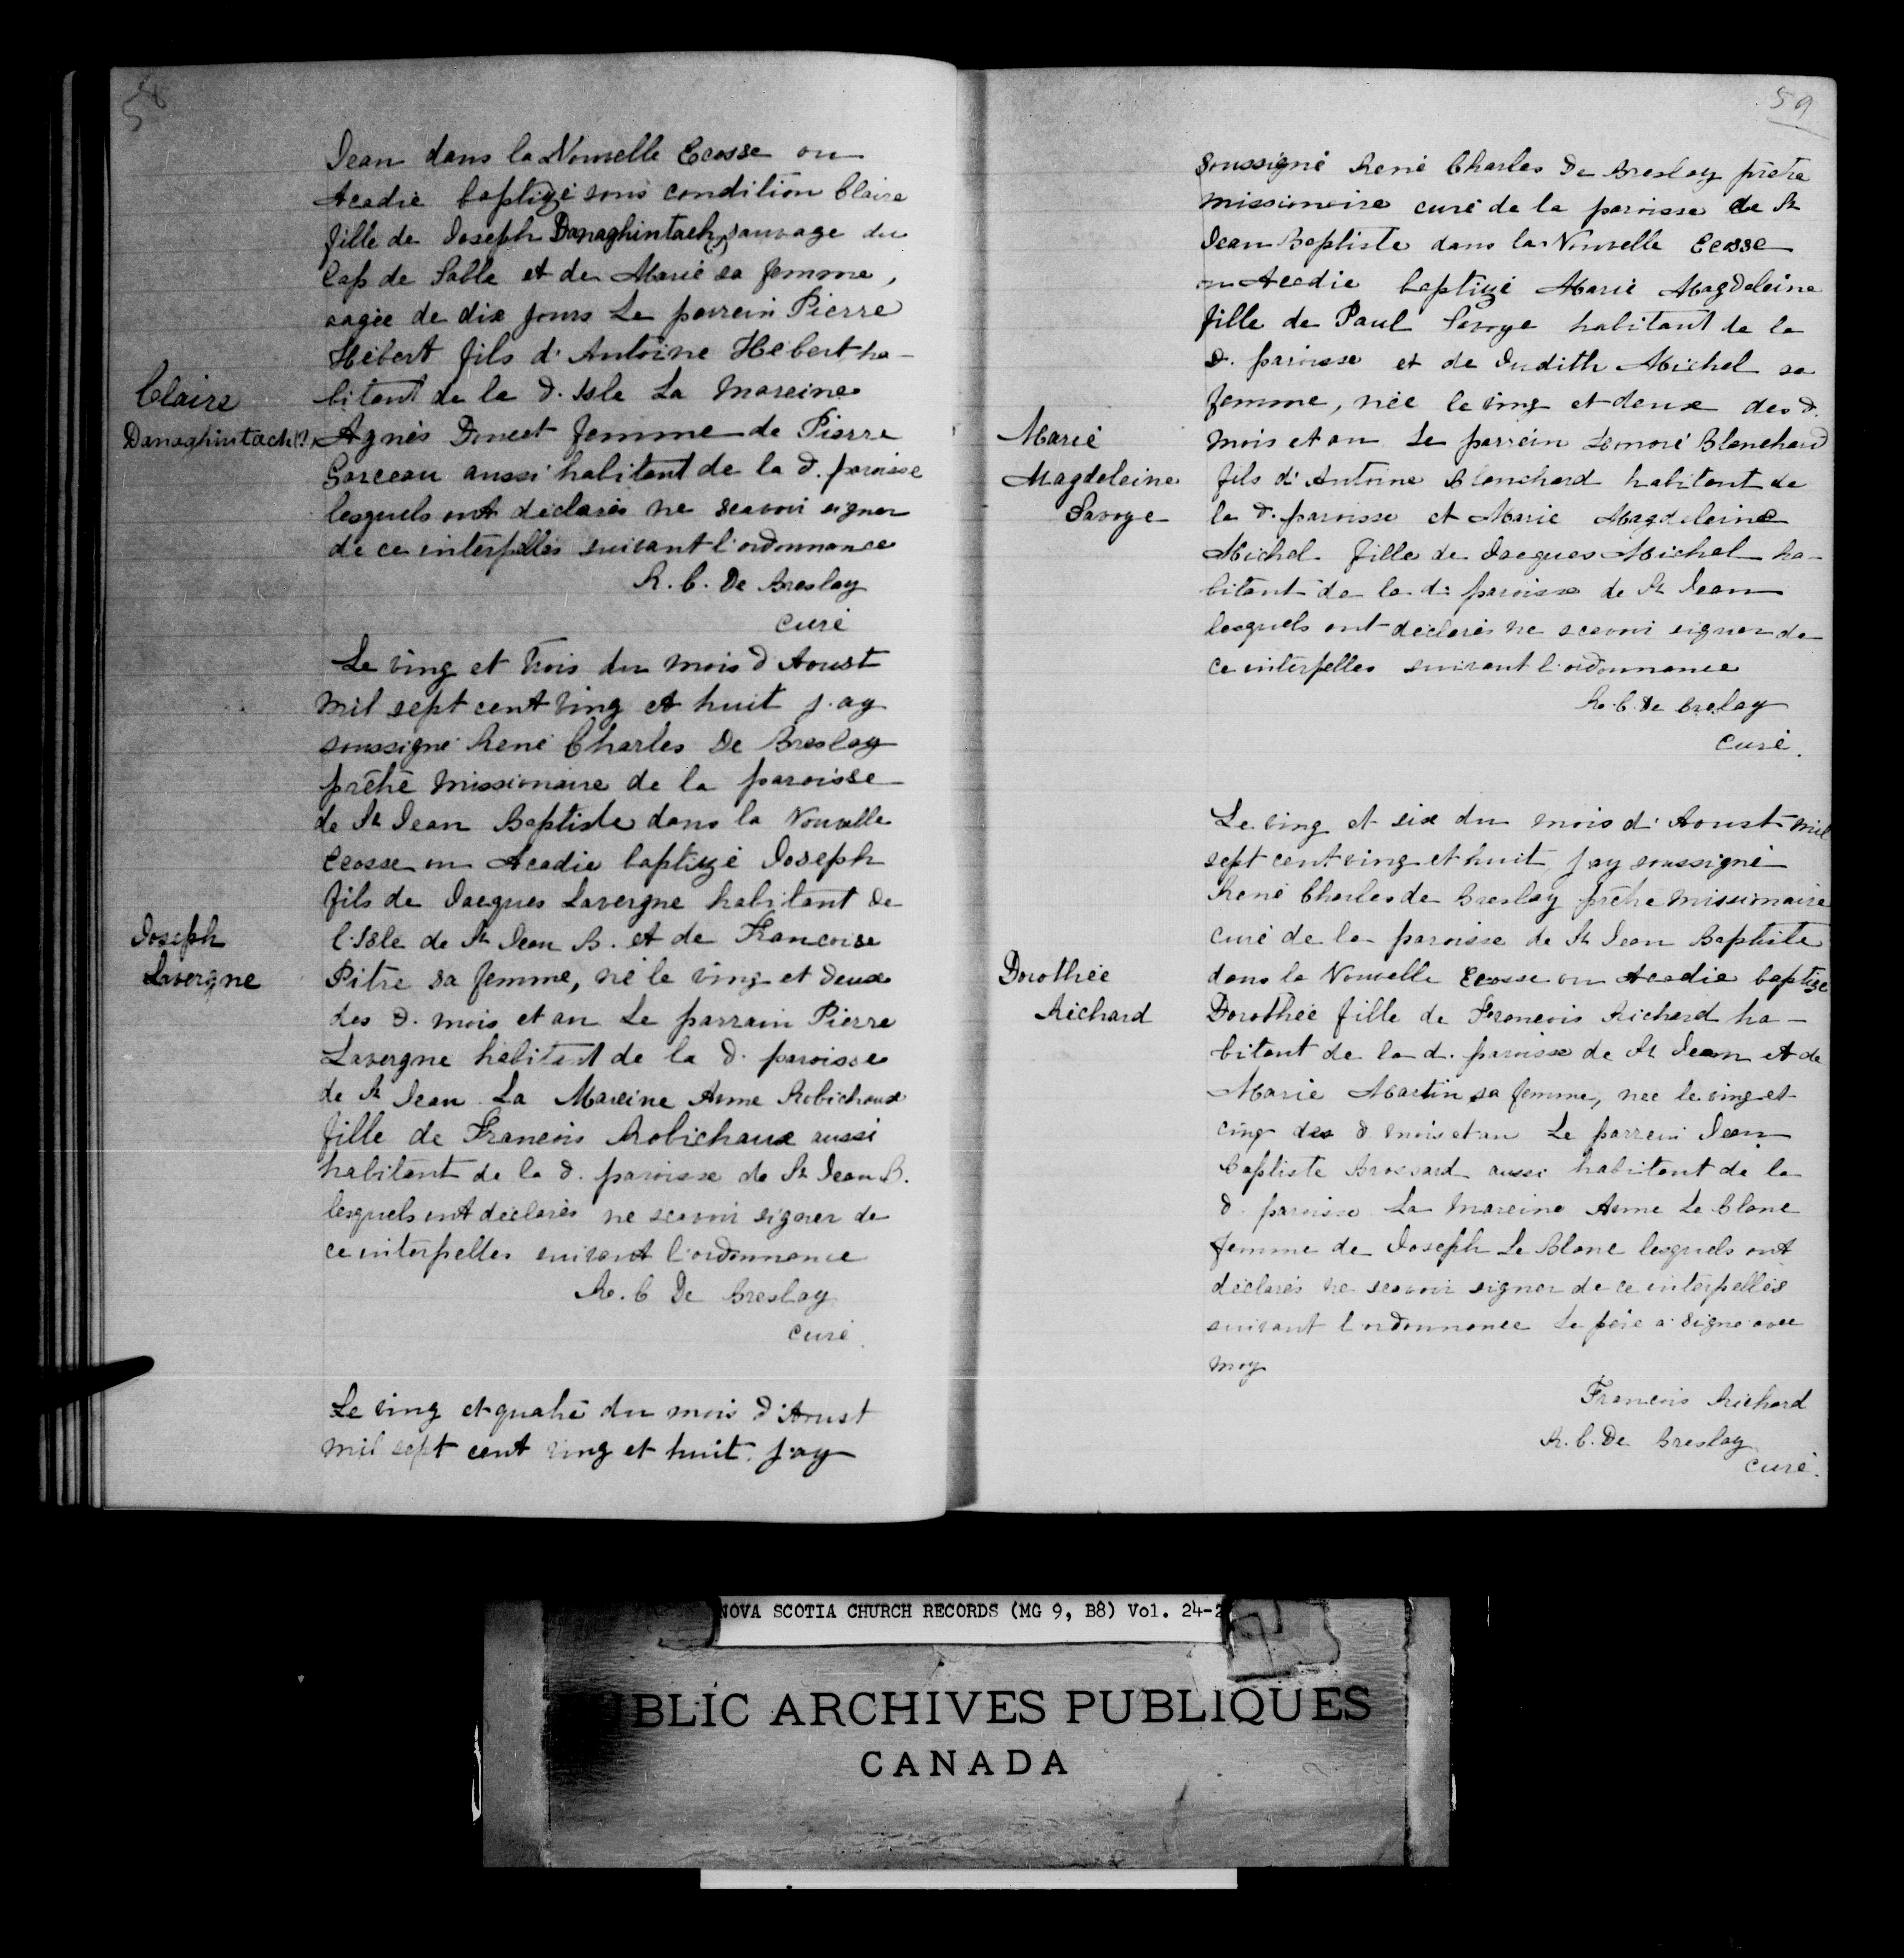 58
Jean dans la Nouvelle Ecosse ou
Acadie baptizé sous condition Claire
fille de Joseph Danaghintach, sauvage du
Cap de Sable et de Marie sa femme,
aagée de dix jours Le parrein Pierre
Hébert fils d'Antoine Hébert ha-
Claire
bitant de la d. Isle La mareine
Danaghintach (?)
Agnès Doucet femme de Pierre
Garceau aussi habitant de la d. paroisse
lesquels ont déclarés ne scavoir signer
de ce interpellés suivant l'ordonnance
R. C. De Breslay
curé
Le ving et trois du mois d'Aoust
mil sept cent ving et huit j'ay
soussigné René Charles De Breslay
prêtre missionaire de la paroisse
de St Jean Baptiste dans la Nouvelle
Ecosse ou Acadie baptizé Joseph
fils de Jacques Lavergne habitant de
Joseph
l'Isle de St Jean B. et de Francoise
Lavergne
Pitre sa femme, né le ving et deux
des d. mois et an Le parrain Pierre
Lavergne habitant de la d. paroisse
de St Jean La Mareine Anne Robichaux
fille de Francois Robichaux aussi
habitant de la d. paroisse de St Jean B.
lesquels ont déclarés ne scavoir signer de
ce interpelles suivant l'ordonnance
R. C De Breslay
curé.
Le ving et quatre du mois d'Aoust
mil sept cent ving et huit j'ay
59
soussigné René Charles De Breslay prêtre
missionaire curé de la paroisse de St
Jean Baptiste dans la Nouvelle Ecosse
ou Acadie baptizé Marie Magdeleine
fille de Paul Savoye habitant de la
d. paroisse et de Judith Michel sa
femme, née le ving et deux des d.
Marie
mois et an Le parrein Honoré Blanchard
Magdeleine
fils d'Antoine Blanchard habitant de
Savoye
la d. paroisse et Marie Magdeleine
Michel fille de Jacques Michel ha-
bitant de la d. paroisse de St Jean
lesquels ont déclarés ne scavoir signer de
ce interpelles suivant l'ordonnance
R. C. De Brelay
Curé.
Le ving et six du mois d'Aoust mil
sept cent ving et huit j'ay soussigné
René Charles de Breslay prêtre missionaire
curé de la paroisse de St Jean Baptiste
Dorothée
dans la Nouvelle Ecosse ou Acadie baptizé
Richard
Dorothée fille de Francois Richard ha-
bitant de la d. paroisse de St Jean et de
Marie Martin sa femme, née le ving et
cinq des d mois et an Le parrein Jean
Baptiste Brossard aussi habitant de la
d. paroisse La mareine Anne Le Blanc
femme de Joseph Le Blanc lesquels ont
déclarés ne scavoir signer de ce interpellés
suivant l'ordonnance Le père a signé avec
moy
Francois Richard
R. C. De Breslay
curé.
NOVA SCOTIA CHURCH RECORDS (MG 9, B8) Vol. 24-2
PUBLIC ARCHIVES PUBLIQUES
CANADA